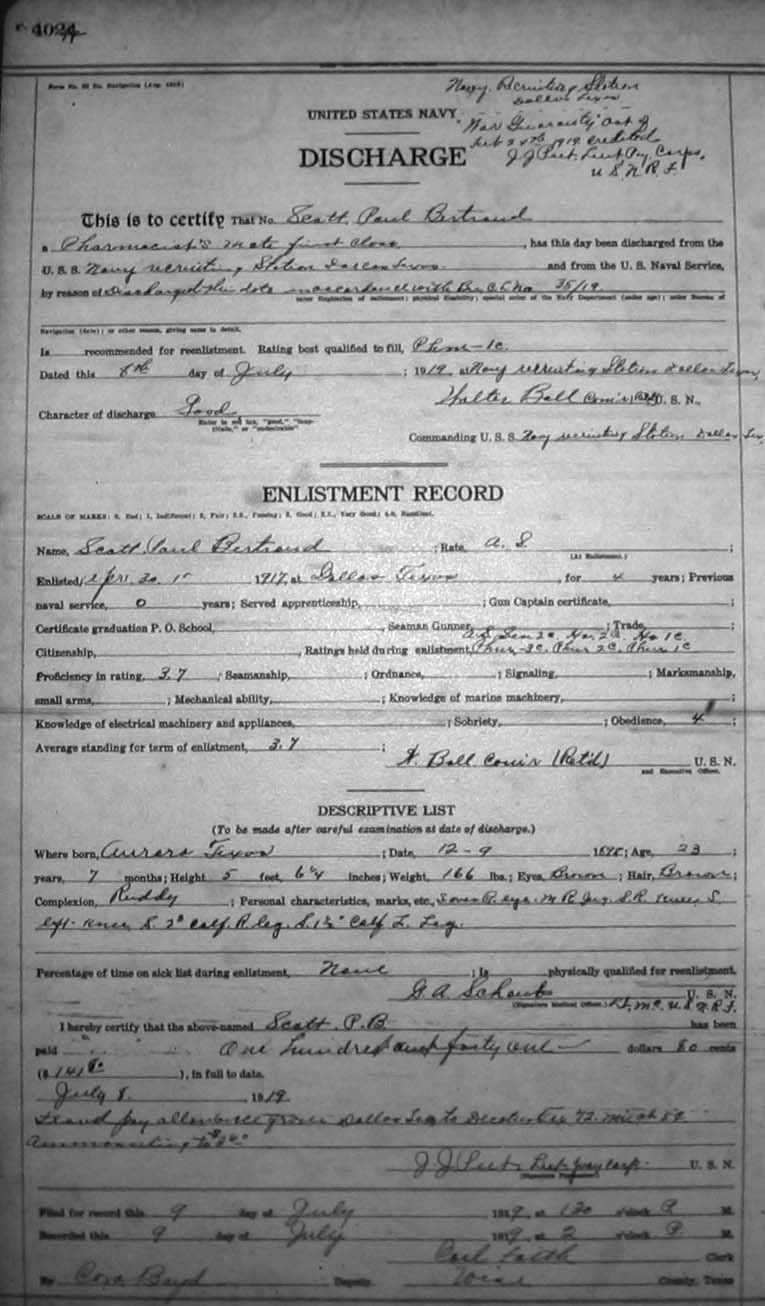 4024
Form No.
Navy Recruiting Station
Dallas Texas
UNITED STATES NAVY
"War Guaranty" Act of
Feb 24th, 1919 credited
DISCHARGE
J J Peet, Lieut Pay Corps,
U.S.N.R.F.
This is to certify That No. Scott, Paul Bertrand
a Pharmacist's Mate first Class, has this day been discharged from the
U. S. S. Navy recruiting Station Dallas Texas and from the U. S. Naval Service,
by reason of Discharged this date in accordance with 35/19.
(enter Expiration of enlistment; physical disability; special order of the Navy Department (under age); order Bureau of
Navigation (date); or other reason, giving same in detail.
Is recommended for reenlistment. Rating best qualified to fill, Phm-1c.
Dated this 8th day of July ; 1919, at Navy recruiting Station Dallas Texas,
Walter Ball U. S. N.,
Character of discharge Good
Enter in red ink, "good,"
or "undesirable"
Commanding U. S. S. Navy recruiting Station Dallas Tex,
ENLISTMENT RECORD
SCALE OF MARKS: 0, Bad; 1, Indifferent; 2, Fair; 2.5, Passing; 3, Good; 3.5, Very Good; 4.0, Excellent.
Name, Scott Paul Bertrand ; Rate, A. S. ;
(At Enlistment.)
Enlisted, 1917, at Dallas Texas , for 4 years; Previous
naval service, 0 years; Served apprenticeship, ; Gun Captain certificate, ;
Certificate graduation P. O. School, , Seaman Gunner, ; Trade, ;
A.S. Sea 2c. Ha. 2c. Ha 1c
Citizenship, , Ratings held during enlistment, Phm-3c, Phm 2c, Phm 1c
Proficiency in rating, 3.7 ; Seamanship, ; Ordnance, ; Signaling, ; Marksmanship,
small arms, ; Mechanical ability, ; Knowledge of marine machinery, ;
Knowledge of electrical machinery and appliances, ; Sobriety, ; Obedience, 4 ;
Average standing for term of enlistment, 3.7 ;
W. Ball (Ret'd) U. S. N.
and Executive Officer.
DESCRIPTIVE LIST
(To be made after careful examination at date of discharge.)
Where born, Aurora Texas ; Date, 12-9 ; Age, 23 ;
years, 7 months; Height 5 feet, 6¼ inches; Weight, 166 lbs.; Eyes, Brown ; Hair, Brown ;
Complexion, Ruddy ; Personal characteristics, marks, etc.,
S. 2" calf R. leg. S. 1½" Calf L. Leg.
Percentage of time on sick list during enlistment, None ; Is physically qualified for reenlistment.
G. A. Schaub U. S. N.
(Signature Medical Officer.) U.S.N.R.F.
I hereby certify that the above-named Scott, P.B. has been
paid One hundred and forty one dollars 80 cents
($ 141 80 ), in full to date.
July 8. 1919.
Travel pay allowance from Dallas Tex to Decatur Tex 72 mi at 5¢
J J Peet, Lieut pay corps. U. S. N.
Filed for record this 9 day of July 1919, at 130 o'clock P. M.
Recorded this 9 day of July 1919, at 2 o'clock P. M.
Clerk
By Cora Boyd Deputy. Wise County, Texas